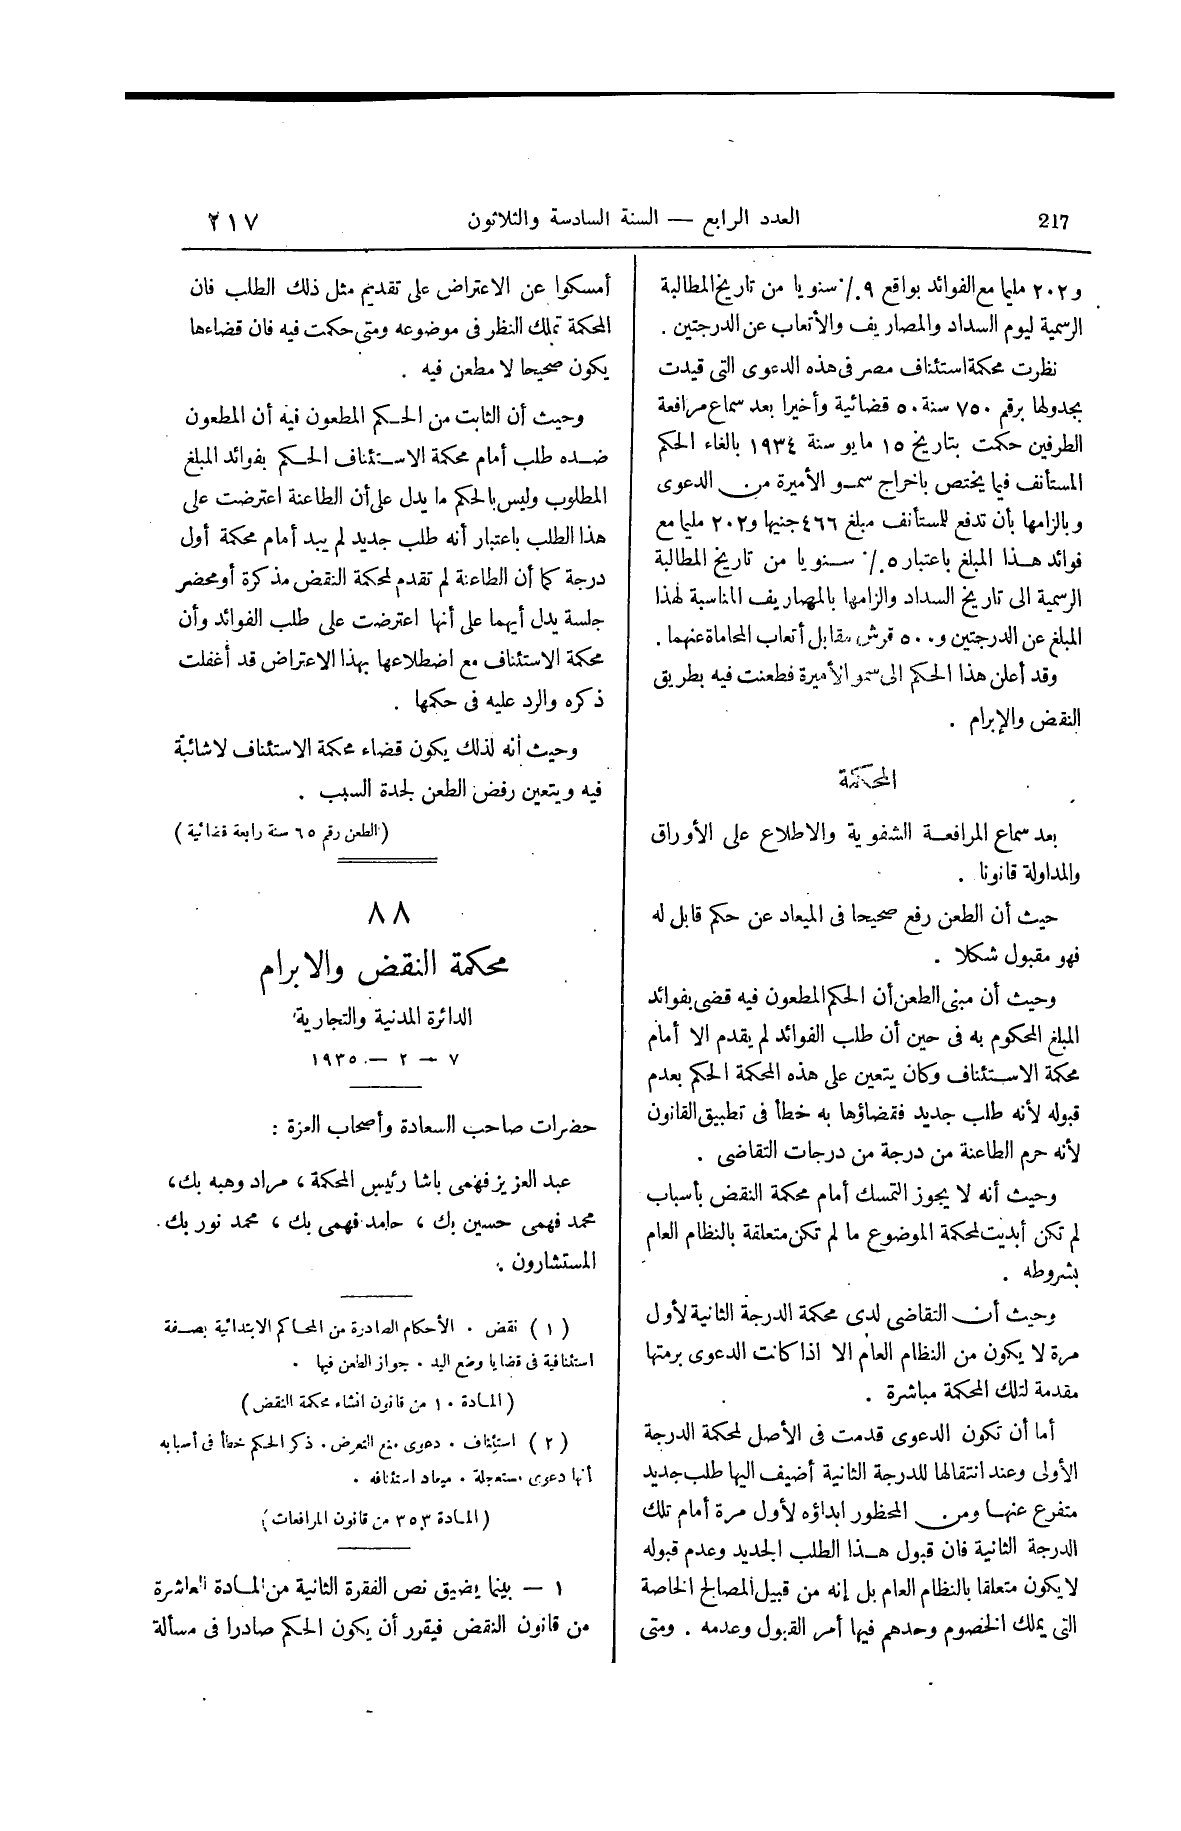 217
العدد الرابع — السنة السادسة والثلاثون
٢١٧
و٢٠٢ مليما مع الفوائد بواقع ٩ ٪ سنويا من تاريخ المطالبة
الرسمية ليوم السداد والمصاريف والأتعاب عن الدرجتين .
نظرت محكمة استئناف مصر فى هذه الدعوى التى قيدت
بجدولها برقم ٧٥٠ سنة ٥٠ قضائية وأخيرا بعد سماع مرافعة
الطرفين حكمت بتاريخ ١٥ مايو سنة ١٩٣٤ بالغاء الحكم
المستأنف فيما يختص باخراج سمو الأميرة من الدعوى
وبالزامها بأن تدفع للمستأنف مبلغ ٤٦٦ جنيها و٢٠٢ مليما مع
فوائد هذا المبلغ باعتبار ٥ ٪ سنويا من تاريخ المطالبة
الرسمية الى تاريخ السداد والزامها بالمصاريف المناسبة لهذا
المبلغ عن الدرجتين و٥٠٠ قرش مقابل أتعاب المحاماة عنهما .
وقد أعلن هذا الحكم الى سمو الأميرة فطعنت فيه بطريق
النقض والإبرام .
المحكمة
بعد سماع المرافعة الشفوية والاطلاع على الأوراق
والمداولة قانونا .
حيث أن الطعن رفع صحيحا فى الميعاد عن حكم قابل له
فهو مقبول شكلا .
وحيث أن مبنى الطعن أن الحكم المطعون فيه قضى بفوائد
المبلغ المحكوم به فى حين أن طلب الفوائد لم يقدم الا أمام
محكمة الاستئناف وكان يتعين على هذه المحكمة الحكم بعدم
قبوله لأنه طلب جديد فقضاؤها به خطأ فى تطبيق القانون
لأنه حرم الطاعنة من درجة من درجات التقاضى .
وحيث أنه لا يجوز التمسك أمام محكمة النقض بأسباب
لم تكن أبديت لمحكمة الموضوع ما لم تكن متعلقة بالنظام العام
بشروطه .
وحيث أن التقاضى لدى محكمة الدرجة الثانية لأول
مرة لا يكون من النظام العام الا اذا كانت الدعوى برمتها
مقدمة لتلك المحكمة مباشرة .
أما أن تكون الدعوى قدمت فى الأصل لمحكمة الدرجة
الأولى وعند انتقالها للدرجة الثانية أضيف اليها طلب جديد
متفرع عنها ومن المحظور ابداؤه لأول مرة أمام تلك
الدرجة الثانية فان قبول هذا الطلب الجديد وعدم قبوله
لا يكون متعلقا بالنظام العام بل إنه من قبيل المصالح الخاصة
التى يملك الخصوم وحدهم فيها أمر القبول وعدمه . ومتى
أمسكوا عن الاعتراض على تقديم مثل ذلك الطلب فان
المحكمة تملك النظر فى موضوعه ومتى حكمت فيه فان قضاءها
يكون صحيحا لا مطعن فيه .
وحيث أن الثابت من الحكم المطعون فيه أن المطعون
ضده طلب أمام محكمة الاستئناف الحكم بفوائد المبلغ
المطلوب وليس بالحكم ما يدل على أن الطاعنة اعترضت على
هذا الطلب باعتبار أنه طلب جديد لم يبد أمام محكمة أول
درجة كما أن الطاعنة لم تقدم لمحكمة النقض مذكرة أو محضر
جلسة يدل أيهما على أنها اعترضت على طلب الفوائد وأن
محكمة الاستئناف مع اضطلاعها بهذا الاعتراض قد أغفلت
ذكره والرد عليه فى حكمها .
وحيث أنه لذلك يكون قضاء محكمة الاستئناف لا شائبة
فيه ويتعين رفض الطعن لهذا السبب .
(الطعن رقم ٦٥ سنة رابعة قضائية)
٨٨
محكمة النقض والابرام
الدائرة المدنية والتجارية
٧ — ٢ — ١٩٣٥
حضرات صاحب السعادة وأصحاب العزة :
عبد العزيز فهمى باشا رئيس المحكمة ، مراد وهبه بك ،
محمد فهمى حسين بك ، حامد فهمى بك ، محمد نور بك
المستشارون .
(١) نقض . الأحكام الصادرة من المحاكم الابتدائية بصفة
استئنافية فى قضايا وضع اليد . جواز الطعن فيها .
(المادة ١٠ من قانون انشاء محكمة النقض)
(٢) استئناف . دعوى منع التعرض . ذكر الحكم خطأ فى أسبابه
أنها دعوى مستعجلة . ميعاد استئنافه .
(المادة ٣٥٣ من قانون المرافعات)
١ — بينما يضيق نص الفقرة الثانية من المادة العاشرة
من قانون النقض فيقرر أن يكون الحكم صادرا فى مسألة